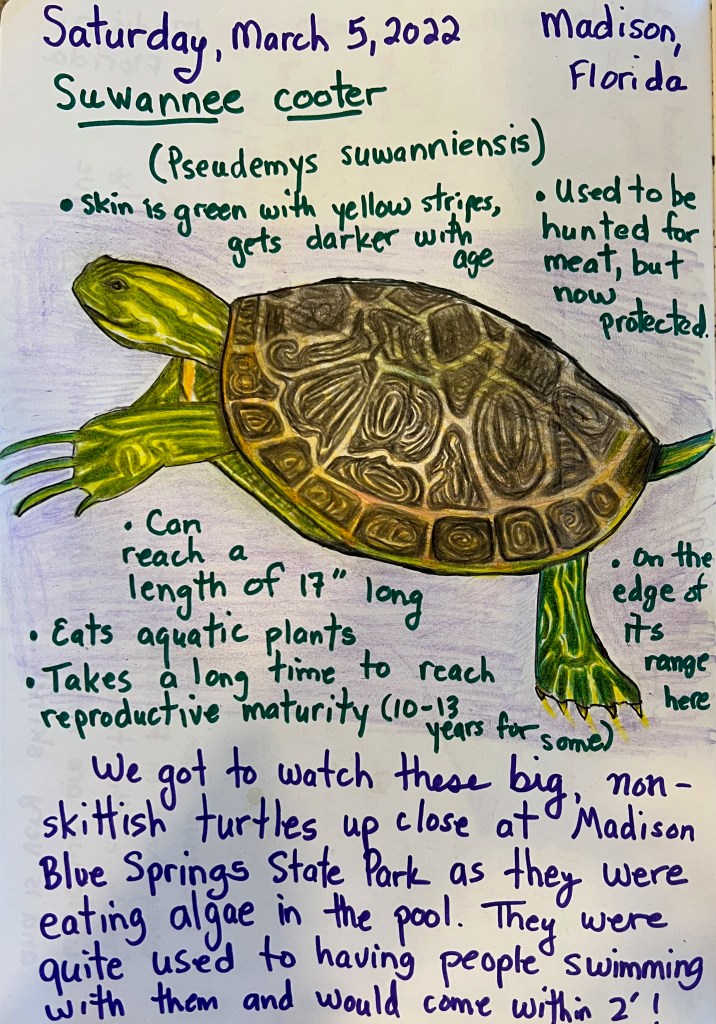 Saturday, March 5, 2022
Madison,
Florida
Suwannee cooter
(Pseudemys suwanniensis)
• Skin is green with yellow stripes,
gets darker with
age
• Used to be
hunted for
meat, but
now
protected.
• Can
reach a
length of 17" long
• Eats aquatic plants
• Takes a long time to reach
reproductive maturity (10-13
years for some)
• On the
edge of
its
range
here
We got to watch these big, non-
skittish turtles up close at Madison
Blue Springs State Park as they were
eating algae in the pool. They were
quite used to having people swimming
with them and would come within 2' !